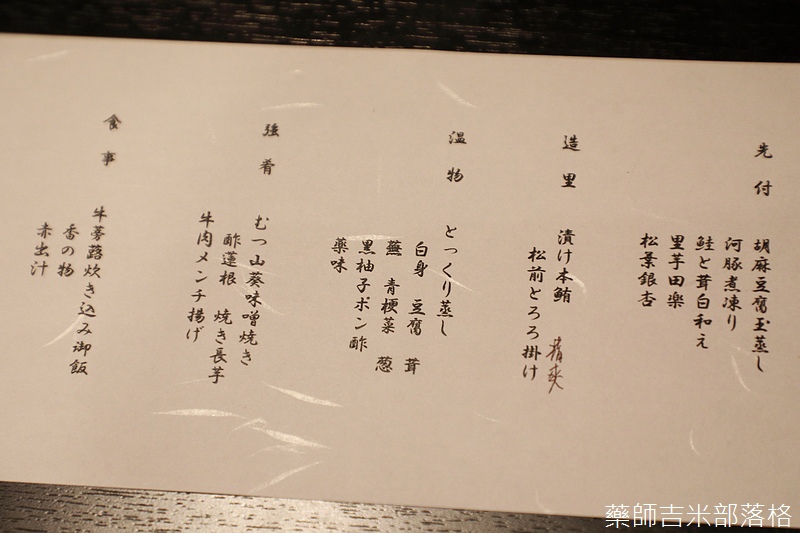 先付
胡麻豆腐玉蒸し
河豚煮凍り
鮭と茸白和え
里芋田楽
松葉銀杏
造里
漬け本鮪
松前とろろ掛け
温物
とっくり蒸し
白身 豆腐 茸
蕪 青梗菜 葱
黒柚子ポン酢
薬味
強肴
むつ山葵味噌焼き
酢蓮根 焼き長芋
牛肉メンチ揚げ
食事
牛蒡蕗炊き込み御飯
香の物
赤出汁
藥師吉米部落格